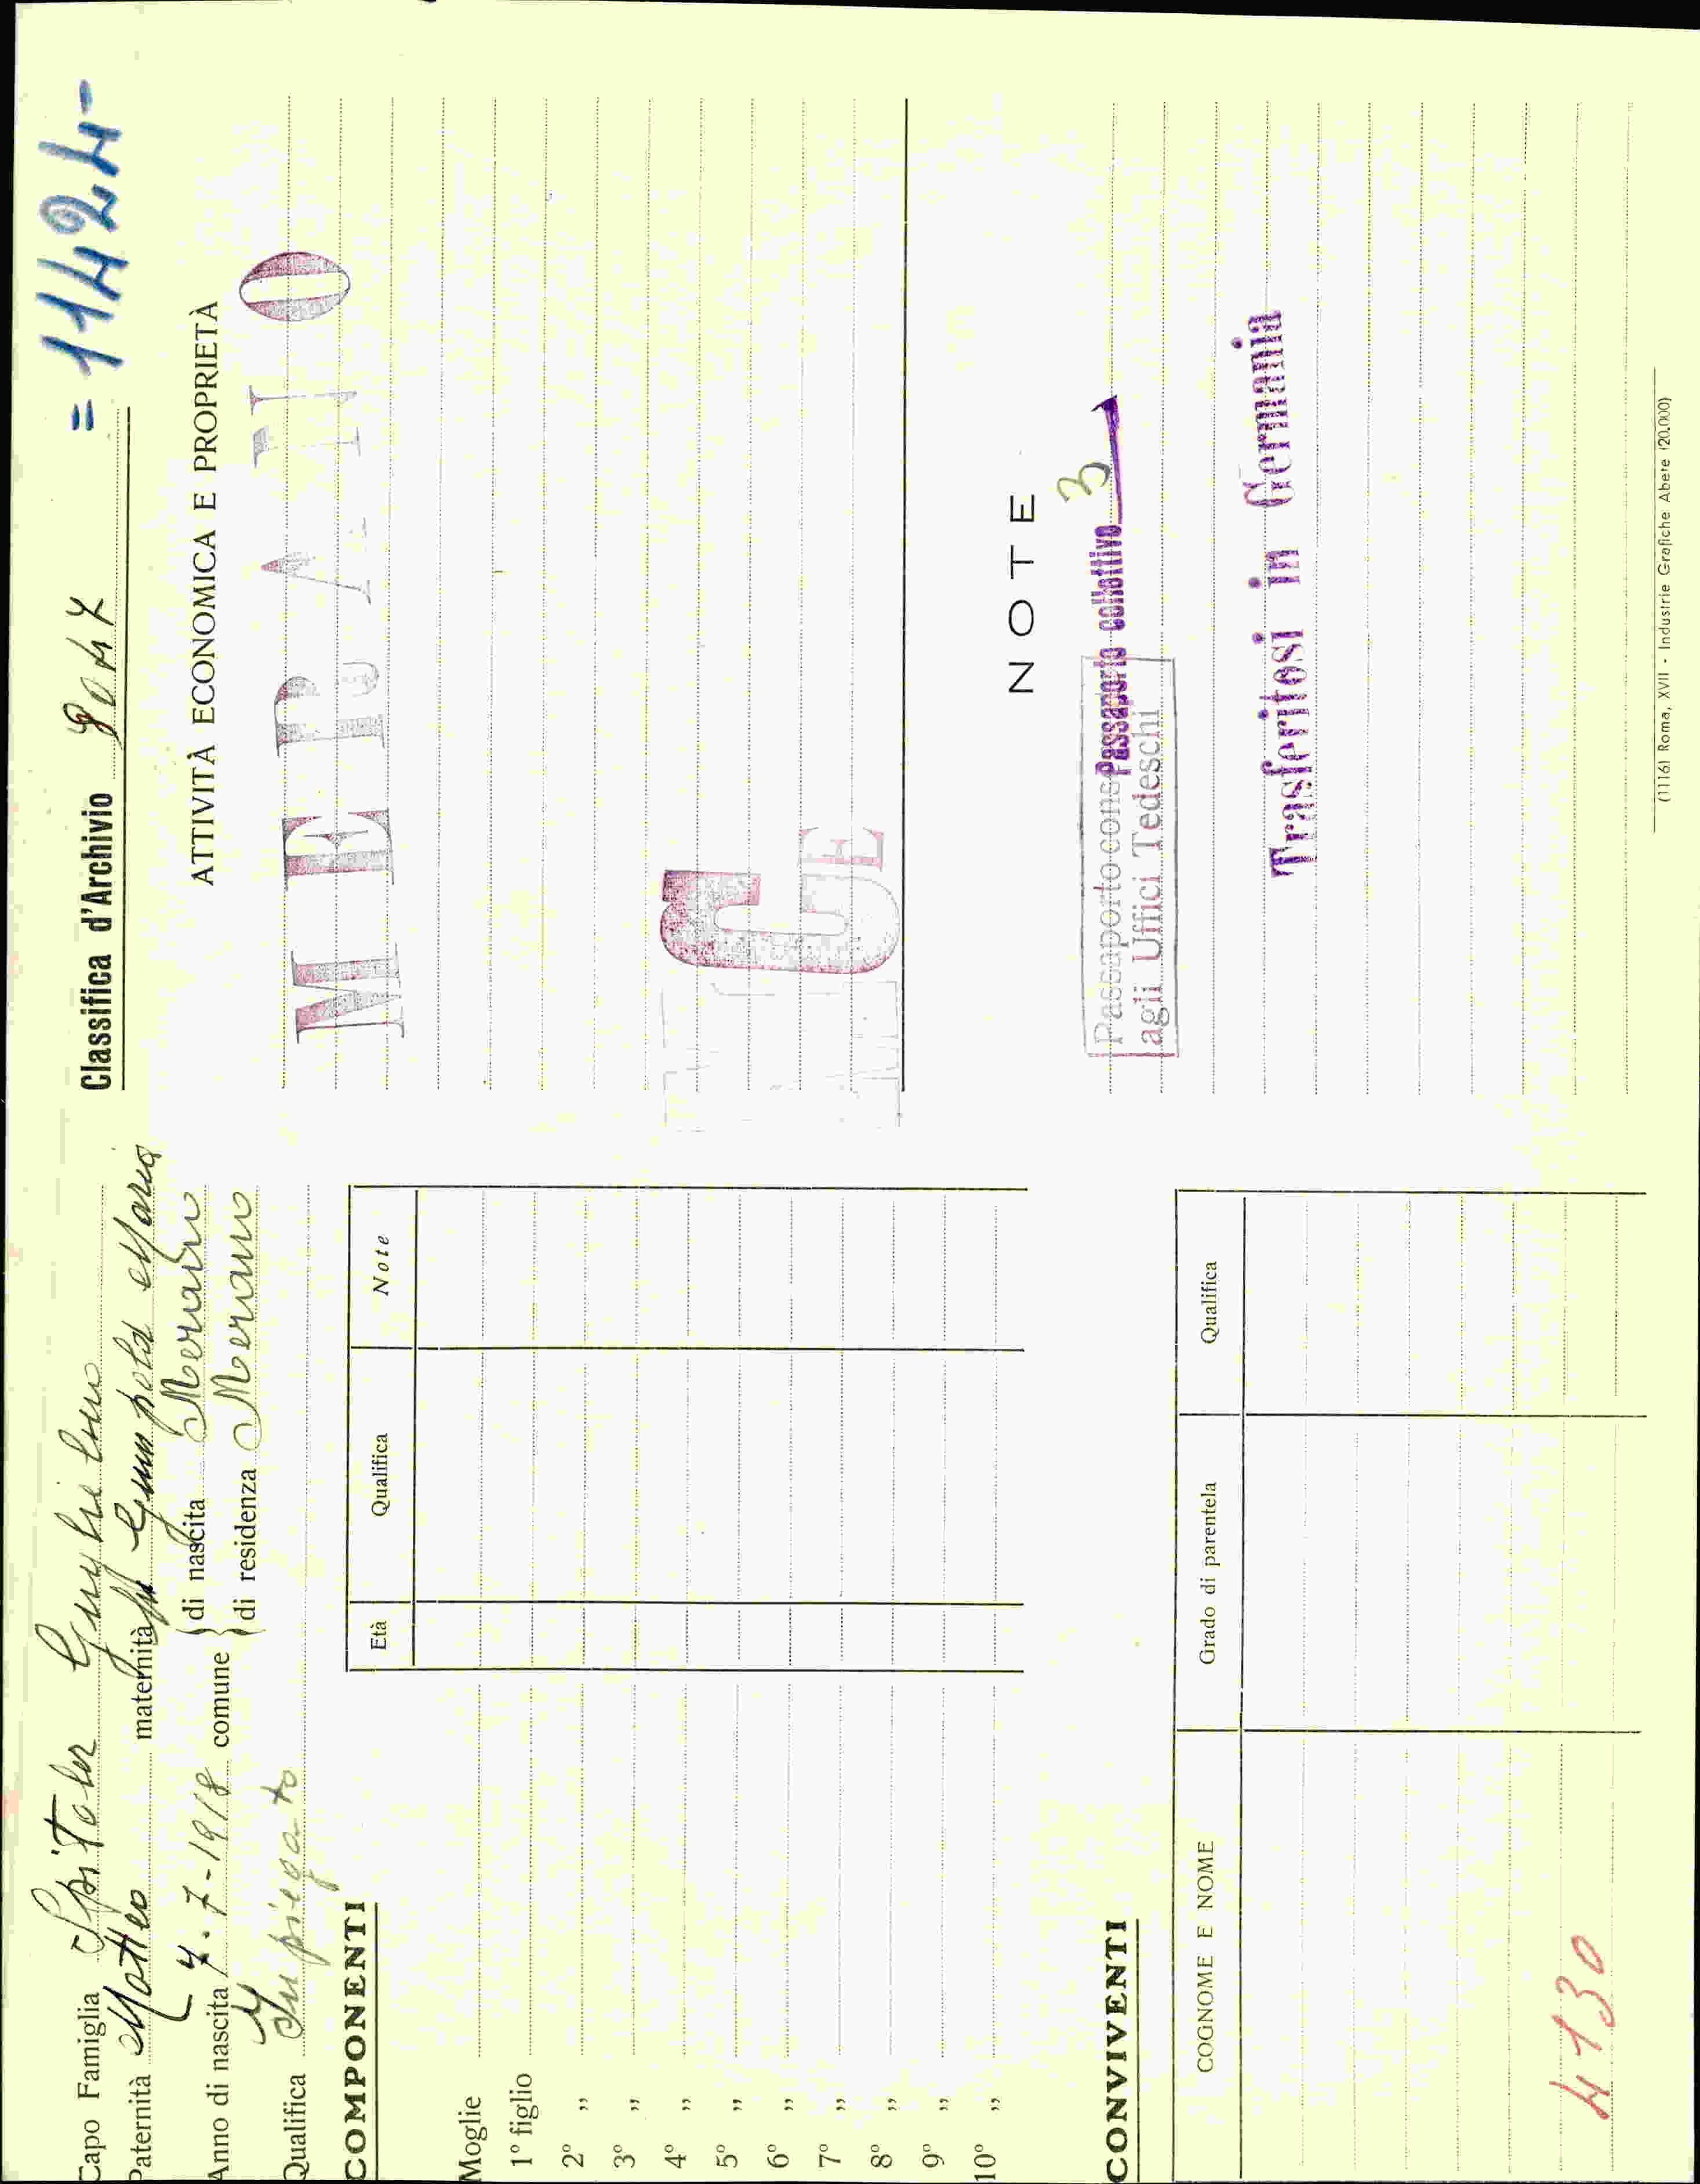 Capo Famiglia Spitaler Guglielmo
Paternità Matteo maternità fu Gumpold Maria
Anno di nascita 7-7-1918 comune di nascita Merano
di residenza Merano
Qualifica Impiegato
COMPONENTI
Età Qualifica Note
Moglie
1° figlio
2° „
3° „
4° „
5° „
6° „
7° „
8° „
9° „
10° „
CONVIVENTI
COGNOME E NOME Grado di parentela Qualifica
4130
Classifica d'Archivio = 11424-
ATTIVITÀ ECONOMICA E PROPRIETÀ
MERANO
G
NOTE
Passaporto cons
agli Uffici Tedeschi
Passaporto collettivo 3
Trasferitosi in Germania
(1116) Roma, XVII - Industrie Grafiche Abete (20.000)